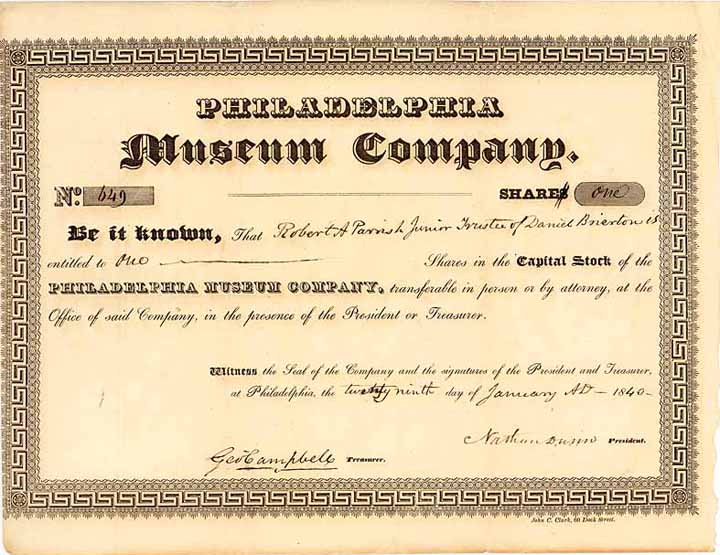 PHILADELPHIA
Museum Company.
No. 649 SHARES One
Be it known, That Robert A Parrish Junior Trustee of Daniel Brierton is
entitled to One Shares in the Capital Stock of the
PHILADELPHIA MUSEUM COMPANY, transferable in person or by attorney, at the
Office of said Company, in the presence of the President or Treasurer.
Witness the Seal of the Company and the signatures of the President and Treasurer,
at Philadelphia, the twenty ninth day of January AD - 1840 -
Nathan Dunn President.
Geo Campbell Treasurer.
John C. Clark, 60 Dock Street.